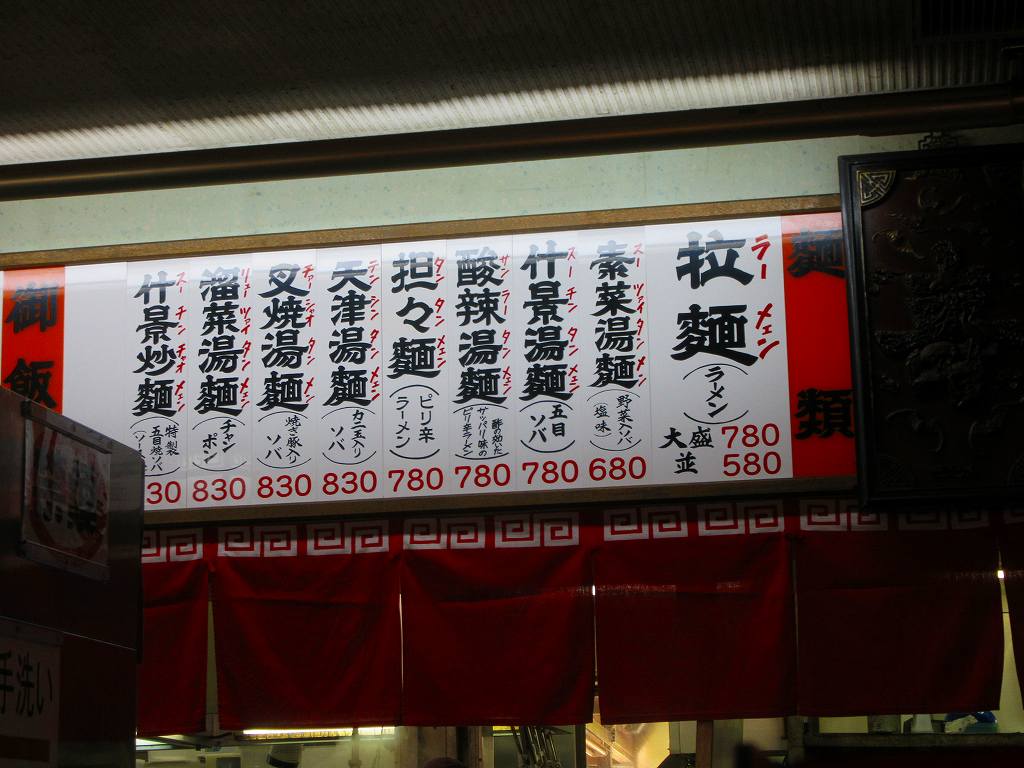 麺類
拉麺
ラーメン
(ラーメン)
大盛 780
並 580
素菜湯麺
スーツァイタンメン
(野菜入ソバ
塩味)
680
什景湯麺
スーチンタンメン
(五目
ソバ)
780
酸辣湯麺
サンラータンメン
(酢の効いた
サッパリ味の
ピリ辛ラーメン)
780
担々麺
タンタンメン
(ピリ辛
ラーメン)
780
天津湯麺
テンシンタンメン
(カニ玉入り
ソバ)
830
叉焼湯麺
チャーシャオタンメン
(焼き豚入り
ソバ)
830
溜菜湯麺
リューツァイタンメン
(チャン
ポン)
830
什景炒麺
スーチンチャオメン
(特製
五目焼ソバ
30
御飯
手洗い